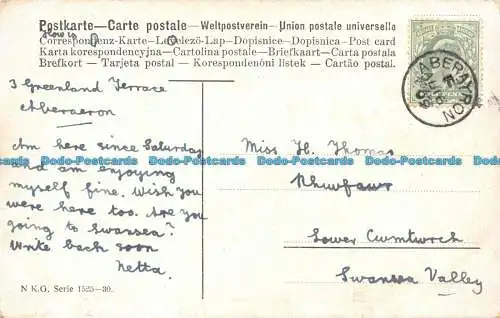 Postkarte—Carte postale—Weltpostverein—Union postale universelle
Correspondenz-Karte—Levelező-Lap—Dopisnice—Dopisnica—Post card
Karta korespondencyjna—Cartolina postale—Briefkaart—Carta postala
Brefkort—Tarjeta postal—Korespondenóni listek—Cartão postal.
How is
3 Greenland Terrace
Aberaeron
Am here since Saturday
and am enjoying
myself fine. Wish you
were here too. Are you
going to Swansea?
Write back soon
Netta.
N K.G. Serie 1525—30.
ABERAYRON
Miss H. Thomas
Rhiwfawr
Lower Cwmtwrch
Swansea Valley
Dodo-Postcards Dodo-Postcards Dodo-Postcards Dodo-Postcards